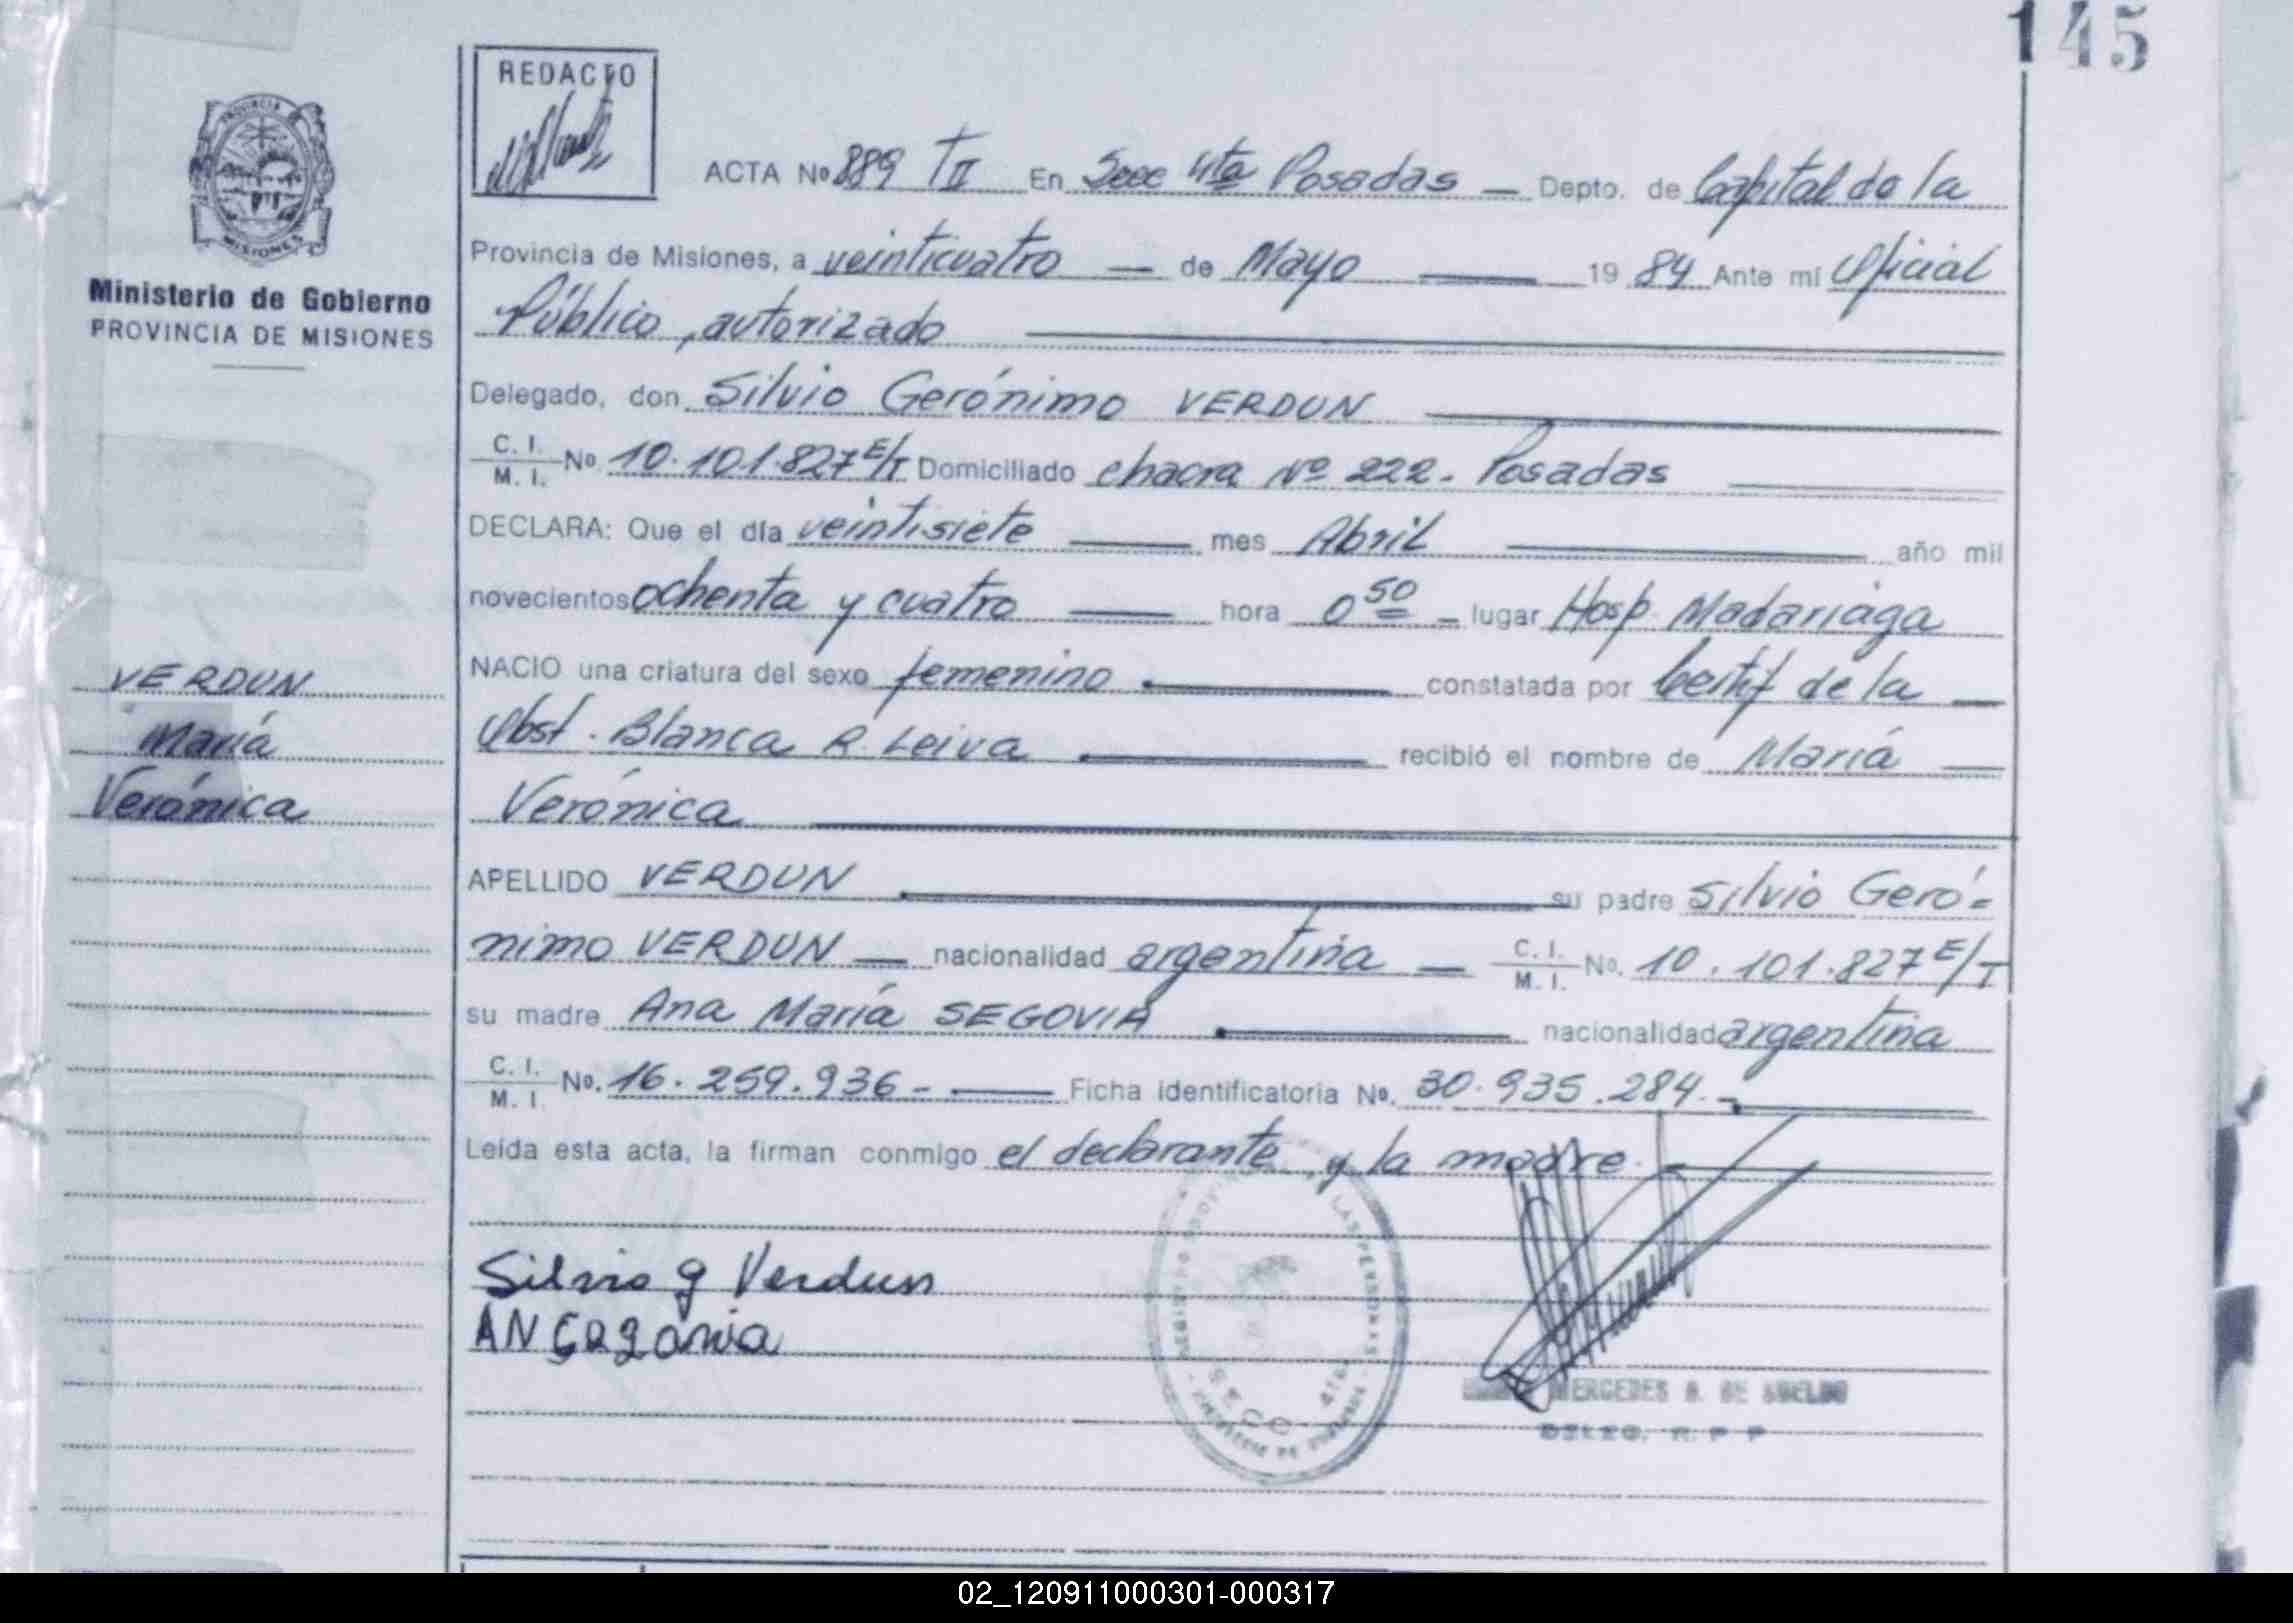 145
REDACTO
PROVINCIA
MISIONES
Ministerio de Gobierno
PROVINCIA DE MISIONES
ACTA No 889 TII En Secc 4ta Posadas — Depto. de Capital de la
Provincia de Misiones, a veinticuatro — de Mayo — 19 84 Ante mí Oficial
Público, autorizado
Delegado, don Silvio Gerónimo VERDUN
C. I.
M. I. No 10.101.827 E/T Domiciliado chacra Nº 222. Posadas
DECLARA: Que el día veintisiete — mes Abril — año mil
novecientos ochenta y cuatro — hora 0 50 — lugar Hosp. Madariaga
NACIO una criatura del sexo femenino — constatada por Certif de la —
Obst. Blanca R. Leiva — recibió el nombre de María —
Verónica
VERDUN
María
Verónica
APELLIDO VERDUN — su padre Silvio Geró=
nimo VERDUN — nacionalidad argentina — C. I.
M. I. No. 10.101.827 E/T
su madre Ana María SEGOVIA — nacionalidad argentina
C. I.
M. I. No. 16.259.936 - — Ficha identificatoria No. 30.935.284.-
Leída esta acta, la firman conmigo el declarante y la madre.
Silvio g Verdun
SECC 4ta
MERCEDES
DELEG. R. P. P
02_120911000301-000317